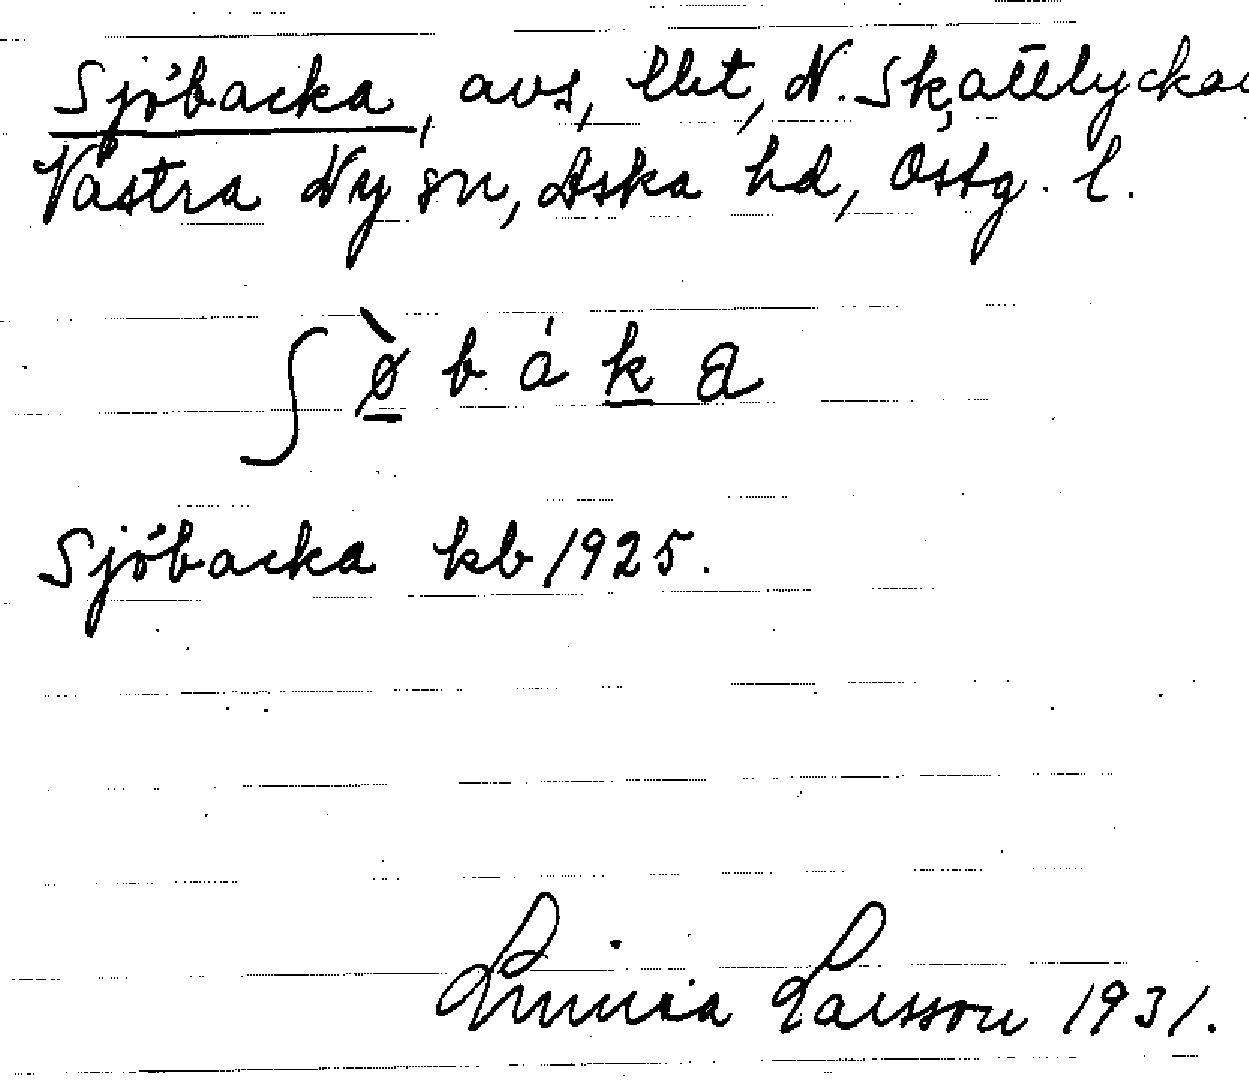 Sjöbacka, avs, lht, N. Skattlyckan
Västra Ny sn, Aska hd, Östg. l.
ʃø̠̀ b á k̠ a
Sjöbacka kb 1925.
Linnea Larsson 1931.